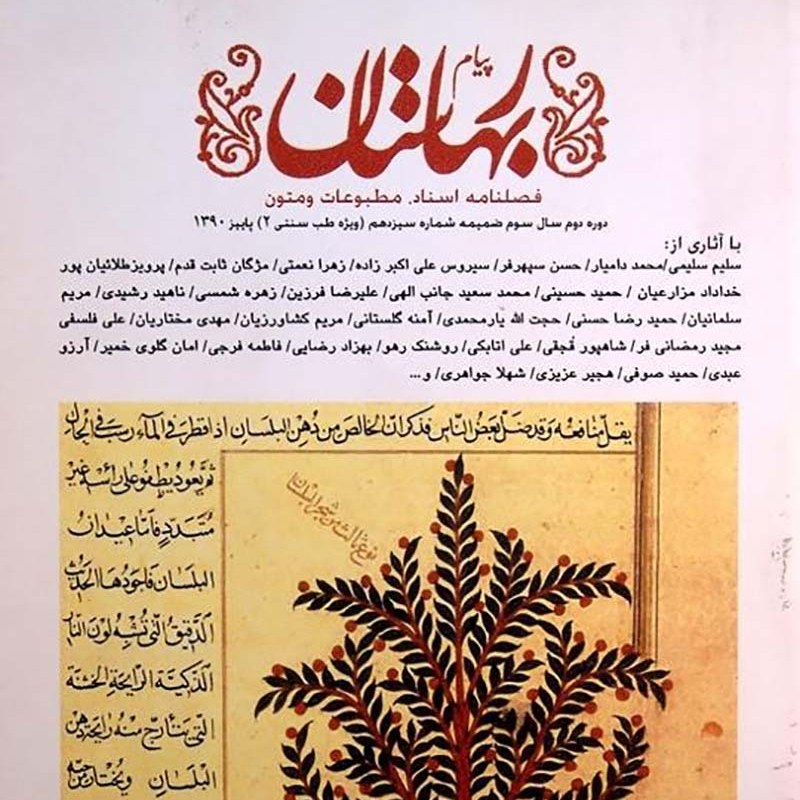 پیام
بهارستان
فصلنامه اسناد، مطبوعات ومتون
دوره دوم سال سوم ضمیمه شماره سیزدهم (ویژه طب سنتی ۲) پاییز ۱۳۹۰
با آثاری از:
سلیم سلیمی/محمد دامیار/ حسن سپهرفر/ سیروس علی اکبر زاده/ زهرا نعمتی/ مژگان ثابت قدم/ پرویزطلائیان پور
خداداد مزارعیان / حمید حسینی/ محمد سعید جانب الهی/ علیرضا فرزین/ زهره شمسی/ ناهید رشیدی/ مریم
سلمانیان/ حمید رضا حسنی/ حجت الله یارمحمدی/ آمنه گلستانی/ مریم کشاورزیان/ مهدی مختاریان/ علی فلسفی
مجید رمضانی فر/ شاهپور قجقی/ علی اتابکی/ روشنک رهو/ بهزاد رضایی/ فاطمه فرجی/ امان گلوی خمیر/ آرزو
عبدی/ حمید صوفی/ هجیر عزیزی/ شهلا جواهری/ و...
يقل منافعه وقد ضل بعض الناس فذكر ان الخالص من دهن البلسان اذا قطر في الماء رسب في الحال
ثم يعود يطفو على رأسه غير
متبدد فاما عيدان
البلسان فاجودها الحديث
الدقيق التي تشبه لون النار
الذكية الرايحة الخشنة
التي ينتارح منه رايحة دهن
البلسان ويختار من حبه
نوع ثالث من شجر البلسان